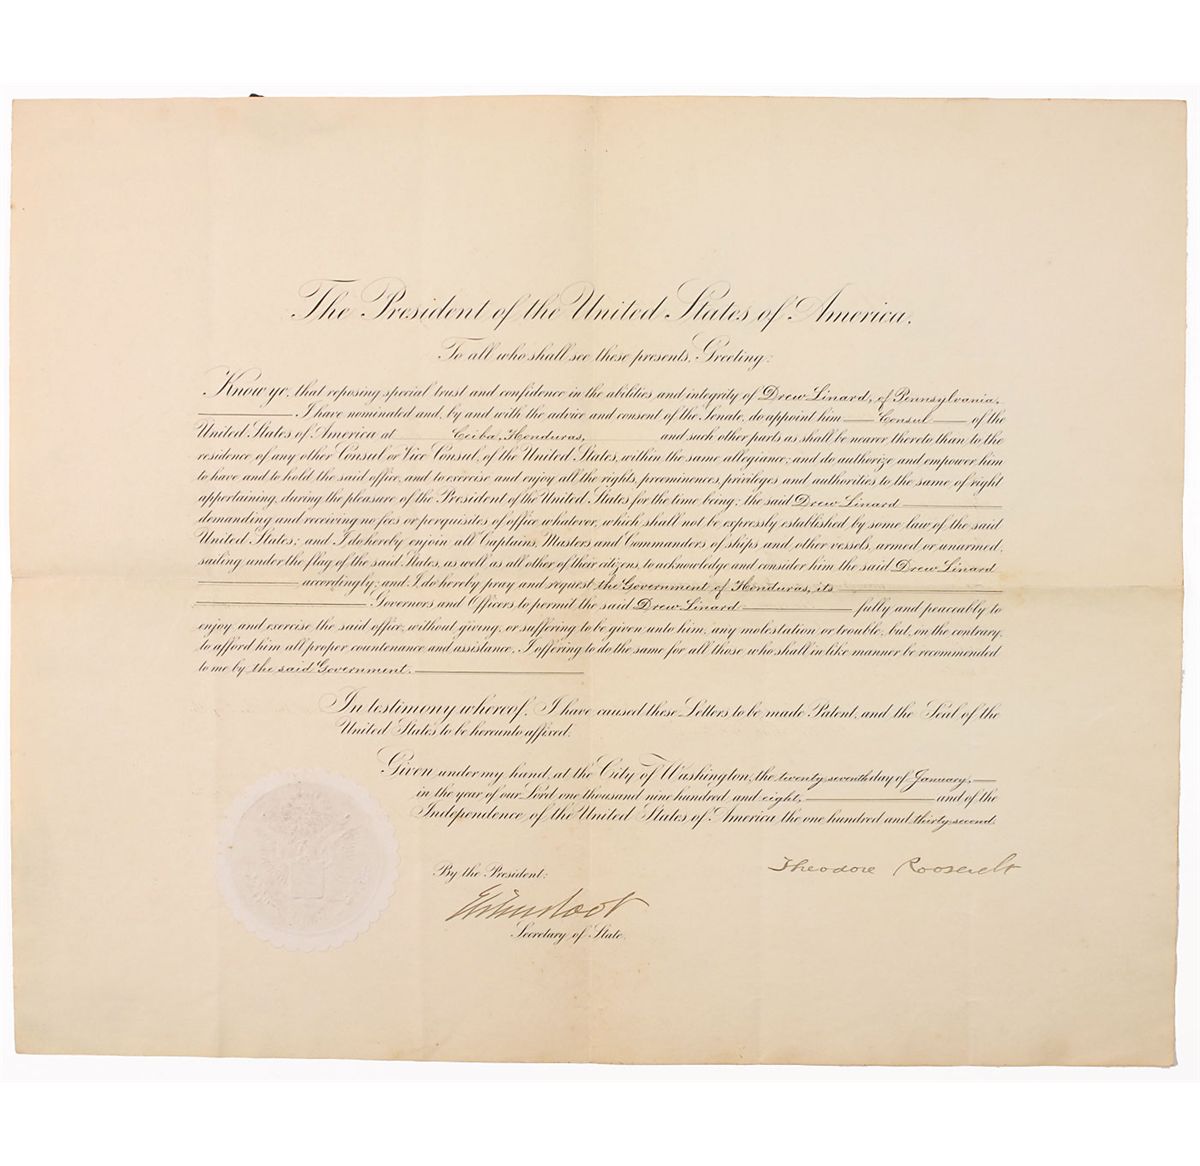 The President of the United States of America.
To all who shall see these presents, Greeting:
Know ye, that reposing special trust and confidence in the abilities and integrity of Drew Linard, of Pennsylvania,
I have nominated and, by and with the advice and consent of the Senate, do appoint him Consul of the
United States of America at Ceiba, Honduras, and such other parts as shall be nearer thereto than to the
residence of any other Consul or Vice Consul, of the United States, within the same allegiance; and do authorize and empower him
to have and to hold the said office, and to exercise and enjoy all the rights, preeminences, privileges and authorities to the same of right
appertaining, during the pleasure of the President of the United States for the time being; the said Drew Linard
demanding and receiving no fees or perquisites of office whatever, which shall not be expressly established by some law of the said
United States; and I do hereby enjoin all Captains, Masters and Commanders of ships and other vessels, armed or unarmed,
sailing under the flag of the said States, as well as all other of their citizens, to acknowledge and consider him the said Drew Linard
accordingly; and I do hereby pray and request the Government of Honduras, its
Governors and Officers to permit the said Drew Linard fully and peaceably to
enjoy and exercise the said office, without giving, or suffering to be given unto him, any molestation or trouble, but, on the contrary,
to afford him all proper countenance and assistance, I offering to do the same for all those who shall in like manner be recommended
to me by the said Government.
In testimony whereof, I have caused these Letters to be made Patent, and the Seal of the
United States to be hereunto affixed.
Given under my hand, at the City of Washington, the twenty seventh day of January,
in the year of our Lord one thousand nine hundred and eight, and of the
Independence of the United States of America, the one hundred and thirty second.
Theodore Roosevelt
By the President:
Elihu Root
Secretary of State.